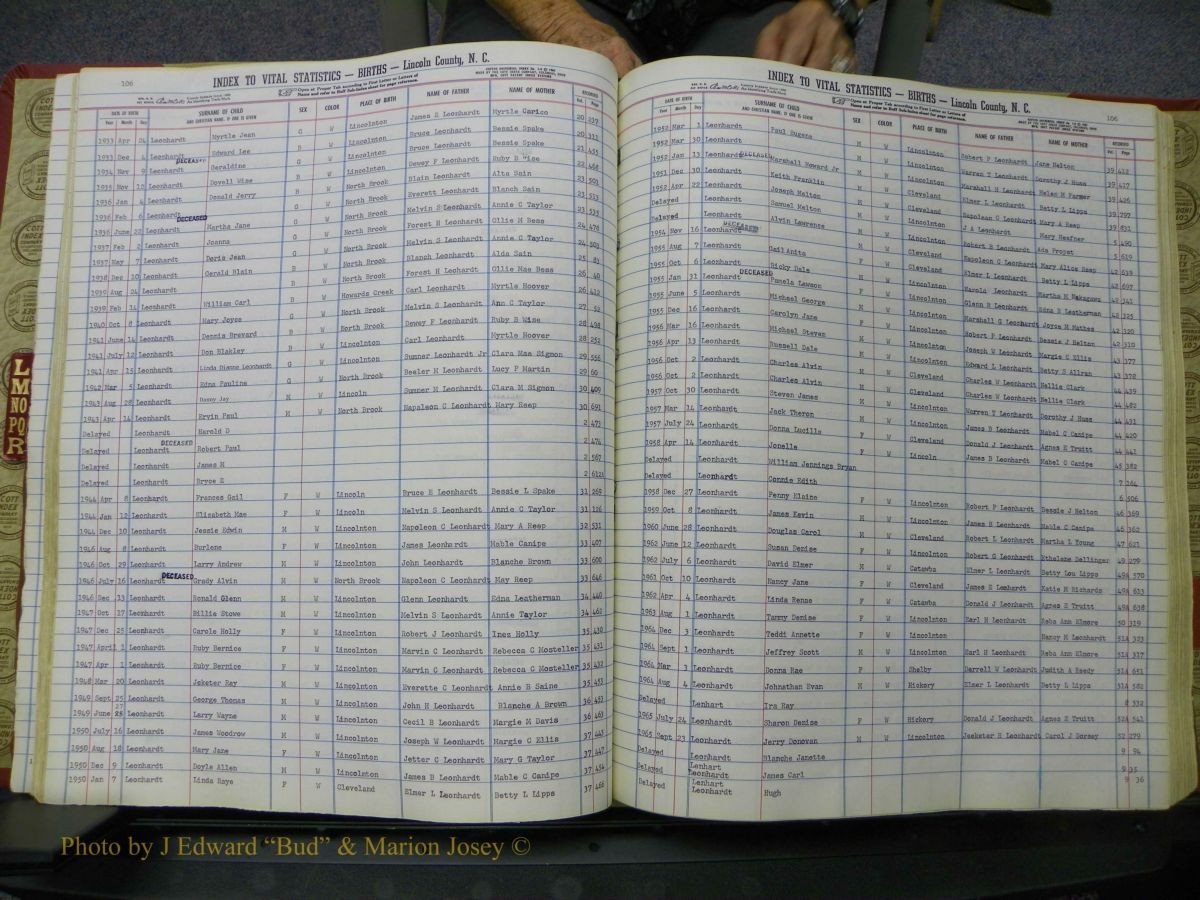 106
INDEX TO VITAL STATISTICS — BIRTHS — Lincoln County, N. C.
DATE OF BIRTH SURNAME OF CHILD SEX COLOR PLACE OF BIRTH NAME OF FATHER NAME OF MOTHER RECORDED
Year Month Day AND CHRISTIAN NAME IF ONE IS GIVEN Vol. Page
1933 Apr 24 Leonhardt Myrtle Jean G W Lincolnton James E Leonhardt Myrtle Carico 20 237
1933 Dec 4 Leonhardt Edward Lee B W Lincolnton Bruce Leonhardt Bessie Spake 20 312
DECEASED
1934 Nov 9 Leonhardt Geraldine G W Lincolnton Bruce Leonhardt Bessie Spake 21 455
1935 Nov 12 Leonhardt Dovell Wise B W North Brook Dewey F Leonhardt Ruby B Wise 22 468
1936 Jan 4 Leonhardt Donald Jerry B W North Brook Blain Leonhardt Alta Sain 23 501
1936 Feb 6 Leonhardt Everett Leonhardt Blanch Sain 23 513
DECEASED
1936 June 22 Leonhardt Martha Jane G W North Brook Melvin S Leonhardt Annie C Taylor 23 533
1937 Feb 2 Leonhardt Joanna G W North Brook Forest H Leonhardt Ollie M Bess 24 478
1937 May 7 Leonhardt Doris Jean G W North Brook Melvin S Leonhardt Annie C Taylor 24 503
1938 Dec 10 Leonhardt Gerald Blain B W North Brook Blanch Leonhardt Alda Sain 25 83
1939 Aug 24 Leonhardt B W North Brook Forest H Leonhardt Ollie Mae Bess 26 40
1939 Feb 14 Leonhardt William Carl B W Howards Creek Carl Leonhardt Myrtle Hoover 26 412
1940 Oct 8 Leonhardt Mary Joyce G W North Brook Melvin S Leonhardt Ann C Taylor 27 52
1941 June 14 Leonhardt Dennis Brevard B W North Brook Dewey F Leonhardt Ruby B Wise 28 498
1941 July 12 Leonhardt Don Blakley B W Lincolnton Carl Leonhardt Myrtle Hoover 28 252
1941 Apr 15 Leonhardt Linda Dianne Leonhardt G W Lincolnton Sumner Leonhardt Jr Clara Mae Sigmon 29 556
1942 Mar 5 Leonhardt Edna Pauline G W North Brook Beeler H Leonhardt Lucy F Martin 29 60
1943 Aug 28 Leonhardt Danny Jay M W Lincoln Sumner M Leonhardt Clara M Sigmon 30 409
1943 Apr 14 Leonhardt Ervin Paul M W North Brook Napoleon C Leonhardt Mary Reep 30 691
Delayed Leonhardt Harold D 2 473
DECEASED
Delayed Leonhardt Robert Paul 2 474
Delayed Leonhardt James M 2 567
Delayed Leonhardt Bryce E
1944 Apr 8 Leonhardt Frances Gail F W Lincoln Bruce E Leonhardt Bessie L Spake 31 269
1944 Jan 12 Leonhardt Elizabeth Mae F W Lincoln Melvin S Leonhardt Annie C Taylor 31 126
1944 Dec 10 Leonhardt Jessie Edwin M W Lincolnton Napoleon C Leonhardt Mary A Reep 32 531
1946 Aug 8 Leonhardt Burlene F W Lincolnton James Leonhardt Mable Canipe 33 407
1946 Oct 29 Leonhardt Larry Andrew M W Lincolnton John Leonhardt Blanche Brown 33 600
DECEASED
1946 July 16 Leonhardt Grady Alvin M W North Brook Napoleon C Leonhardt May Reep 33 646
1946 Dec 13 Leonhardt Ronald Glenn M W Lincolnton Glenn Leonhardt Edna Leatherman 34 440
1947 Oct 17 Leonhardt Billie Stowe M W Lincolnton Melvin S Leonhardt Annie Taylor 34 462
1947 Dec 25 Leonhardt Carole Holly F W Lincolnton Robert J Leonhardt Ines Holly 35 430
1947 April 1 Leonhardt Ruby Bernice F W Lincolnton Marvin C Leonhardt Rebecca C Mosteller 35 431
1947 Apr 1 Leonhardt Ruby Bernice F W Lincolnton Marvin C Leonhardt Rebecca C Mosteller 35 432
1948 Mar 20 Leonhardt Jeketer Ray M W Lincolnton Everette C Leonhardt Annie B Saine 35 453
1949 Sept 25 Leonhardt George Thomas M W Lincolnton John H Leonhardt Blanche A Brown 36 453
27
1949 June 25 Leonhardt Larry Wayne M W Lincolnton Cecil B Leonhardt Margie M Davis 36 463
1950 July 16 Leonhardt James Woodrow M W Lincolnton Joseph W Leonhardt Margie C Ellis 37 445
1950 Aug 18 Leonhardt Mary Jane F W Lincolnton Jetter C Leonhardt Mary G Taylor 37 447
1950 Dec 9 Leonhardt Doyle Allen M W Lincolnton James B Leonhardt Mable C Canipe 37 454
1950 Jan 7 Leonhardt Linda Raye F W Cleveland Elmer L Leonhardt Betty L Lipps 37 466
106
INDEX TO VITAL STATISTICS — BIRTHS — Lincoln County, N. C.
DATE OF BIRTH SURNAME OF CHILD SEX COLOR PLACE OF BIRTH NAME OF FATHER NAME OF MOTHER RECORDED
Year Month Day AND CHRISTIAN NAME IF ONE IS GIVEN Vol. Page
1952 Mar 1 Leonhardt Paul Eugene M W Lincolnton Robert P Leonhardt Jane Helton 39 412
1952 Mar 30 Leonhardt M W Lincolnton Warren T Leonhardt Dorothy J Huss 39 417
DECEASED
1952 Jan 13 Leonhardt Marshall Howard Jr M W Lincolnton Marshall H Leonhardt Helen M Farmer 39 426
1951 Dec 30 Leonhardt Keith Franklin M W Cleveland Elmer L Leonhardt Betty L Lipps 39 797
1952 Apr 22 Leonhardt Joseph Melton M W Lincolnton Napoleon C Leonhardt Mary A Reep 39 831
Delayed Leonhardt Samuel Melton J A Leonhardt Mary Heafner 5 490
Delayed Leonhardt Alvin Lawrence Robert B Leonhardt Ada Propst 5 619
DECEASED
1954 Nov 16 Leonhardt Napoleon C Leonhardt Mary Alice Reep 42 639
1955 Aug 7 Leonhardt Gail Anita Elmer L Leonhardt Betty L Lipps 42 697
1955 Oct 6 Leonhardt Ricky Dale Harold Leonhardt
DECEASED
1955 Jan 31 Leonhardt Pamela Lawson Glenn R Leonhardt Edna B Leatherman
1955 June 5 Leonhardt Michael George Marshall G Leonhardt Joyce M Mathes
1955 Dec 16 Leonhardt Carolyn Jane Robert P Leonhardt Bessie J Helton
1956 Mar 16 Leonhardt Michael Steven Joseph W Leonhardt Margie C Ellis
1956 Apr 13 Leonhardt Russell Dale Edward L Leonhardt Betty S Allran
1956 Oct 2 Leonhardt Charles Alvin Charles W Leonhardt Nellie Clark
1956 Oct 2 Leonhardt Charles Alvin Charles W Leonhardt Nellie Clark
1957 Oct 30 Leonhardt Steven James Warren T Leonhardt Dorothy J Huss
1957 Mar 14 Leonhardt Jack Theron James B Leonhardt Mabel C Canipe
1957 July 24 Leonhardt Donna Lucille Donald J Leonhardt Agnes E Truitt
1958 Apr 14 Leonhardt Jonelle James B Leonhardt Mabel C Canipe 45 382
Delayed Leonhardt William Jennings Bryan 7 164
Delayed Leonhardt Connie Edith 6 506
1958 Dec 27 Leonhardt Penny Elaine F W Lincolnton Robert P Leonhardt Bessie J Helton 46 369
1959 Oct 8 Leonhardt James Kevin M W Lincolnton James B Leonhardt Mable C Canipe 46 362
1960 June 28 Leonhardt Douglas Carol M W Cleveland Robert L Leonhardt Martha L Young 47 621
1962 June 12 Leonhardt Susan Denise F W Lincolnton Robert G Leonhardt Ethelene Dellinger 49 279
1962 July 6 Leonhardt David Elmer M W Catawba Elmer L Leonhardt Betty Lou Lipps 49A 570
1961 Oct 10 Leonhardt Nancy Jane F W Cleveland James E Leonhardt Katie M Richards 49A 613
1962 Apr 4 Leonhardt Linda Renee F W Catawba Donald J Leonhardt Agnes E Truitt 49A 638
1963 Aug 1 Leonhardt Tammy Denise F W Lincolnton Earl H Leonhardt Reba Ann Elmore 50 319
1964 Dec 3 Leonhardt Teddi Annette F W Lincolnton Nancy M Leonhardt 51A 323
1964 Sept 1 Leonhardt Jeffrey Scott M W Lincolnton Earl H Leonhardt Reba Ann Elmore 51A 317
1964 Mar 3 Leonhardt Donna Rae F W Shelby Darrell W Leonhardt Judith A Reedy 51A 651
1964 Aug 4 Leonhardt Johnathan Evan M W Hickory Elmer L Leonhardt Betty L Lipps 51A 582
Delayed Lenhart Ira Ray 8 332
1965 July 24 Leonhardt Sharon Denise F W Hickory Donald J Leonhardt Agnes E Truitt 52A 541
1965 Sept 23 Leonhardt Jerry Donovan M W Lincolnton Jeeketer R Leonhardt Carol J Dorsey 52 279
Delayed Leonhardt Blanche Janette 9 94
Delayed Lenhart Leonhardt James Carl 9 35
Delayed Lenhart Leonhardt Hugh 9 36
L
M
NO
PQ
R
Photo by J Edward “Bud” & Marion Josey ©